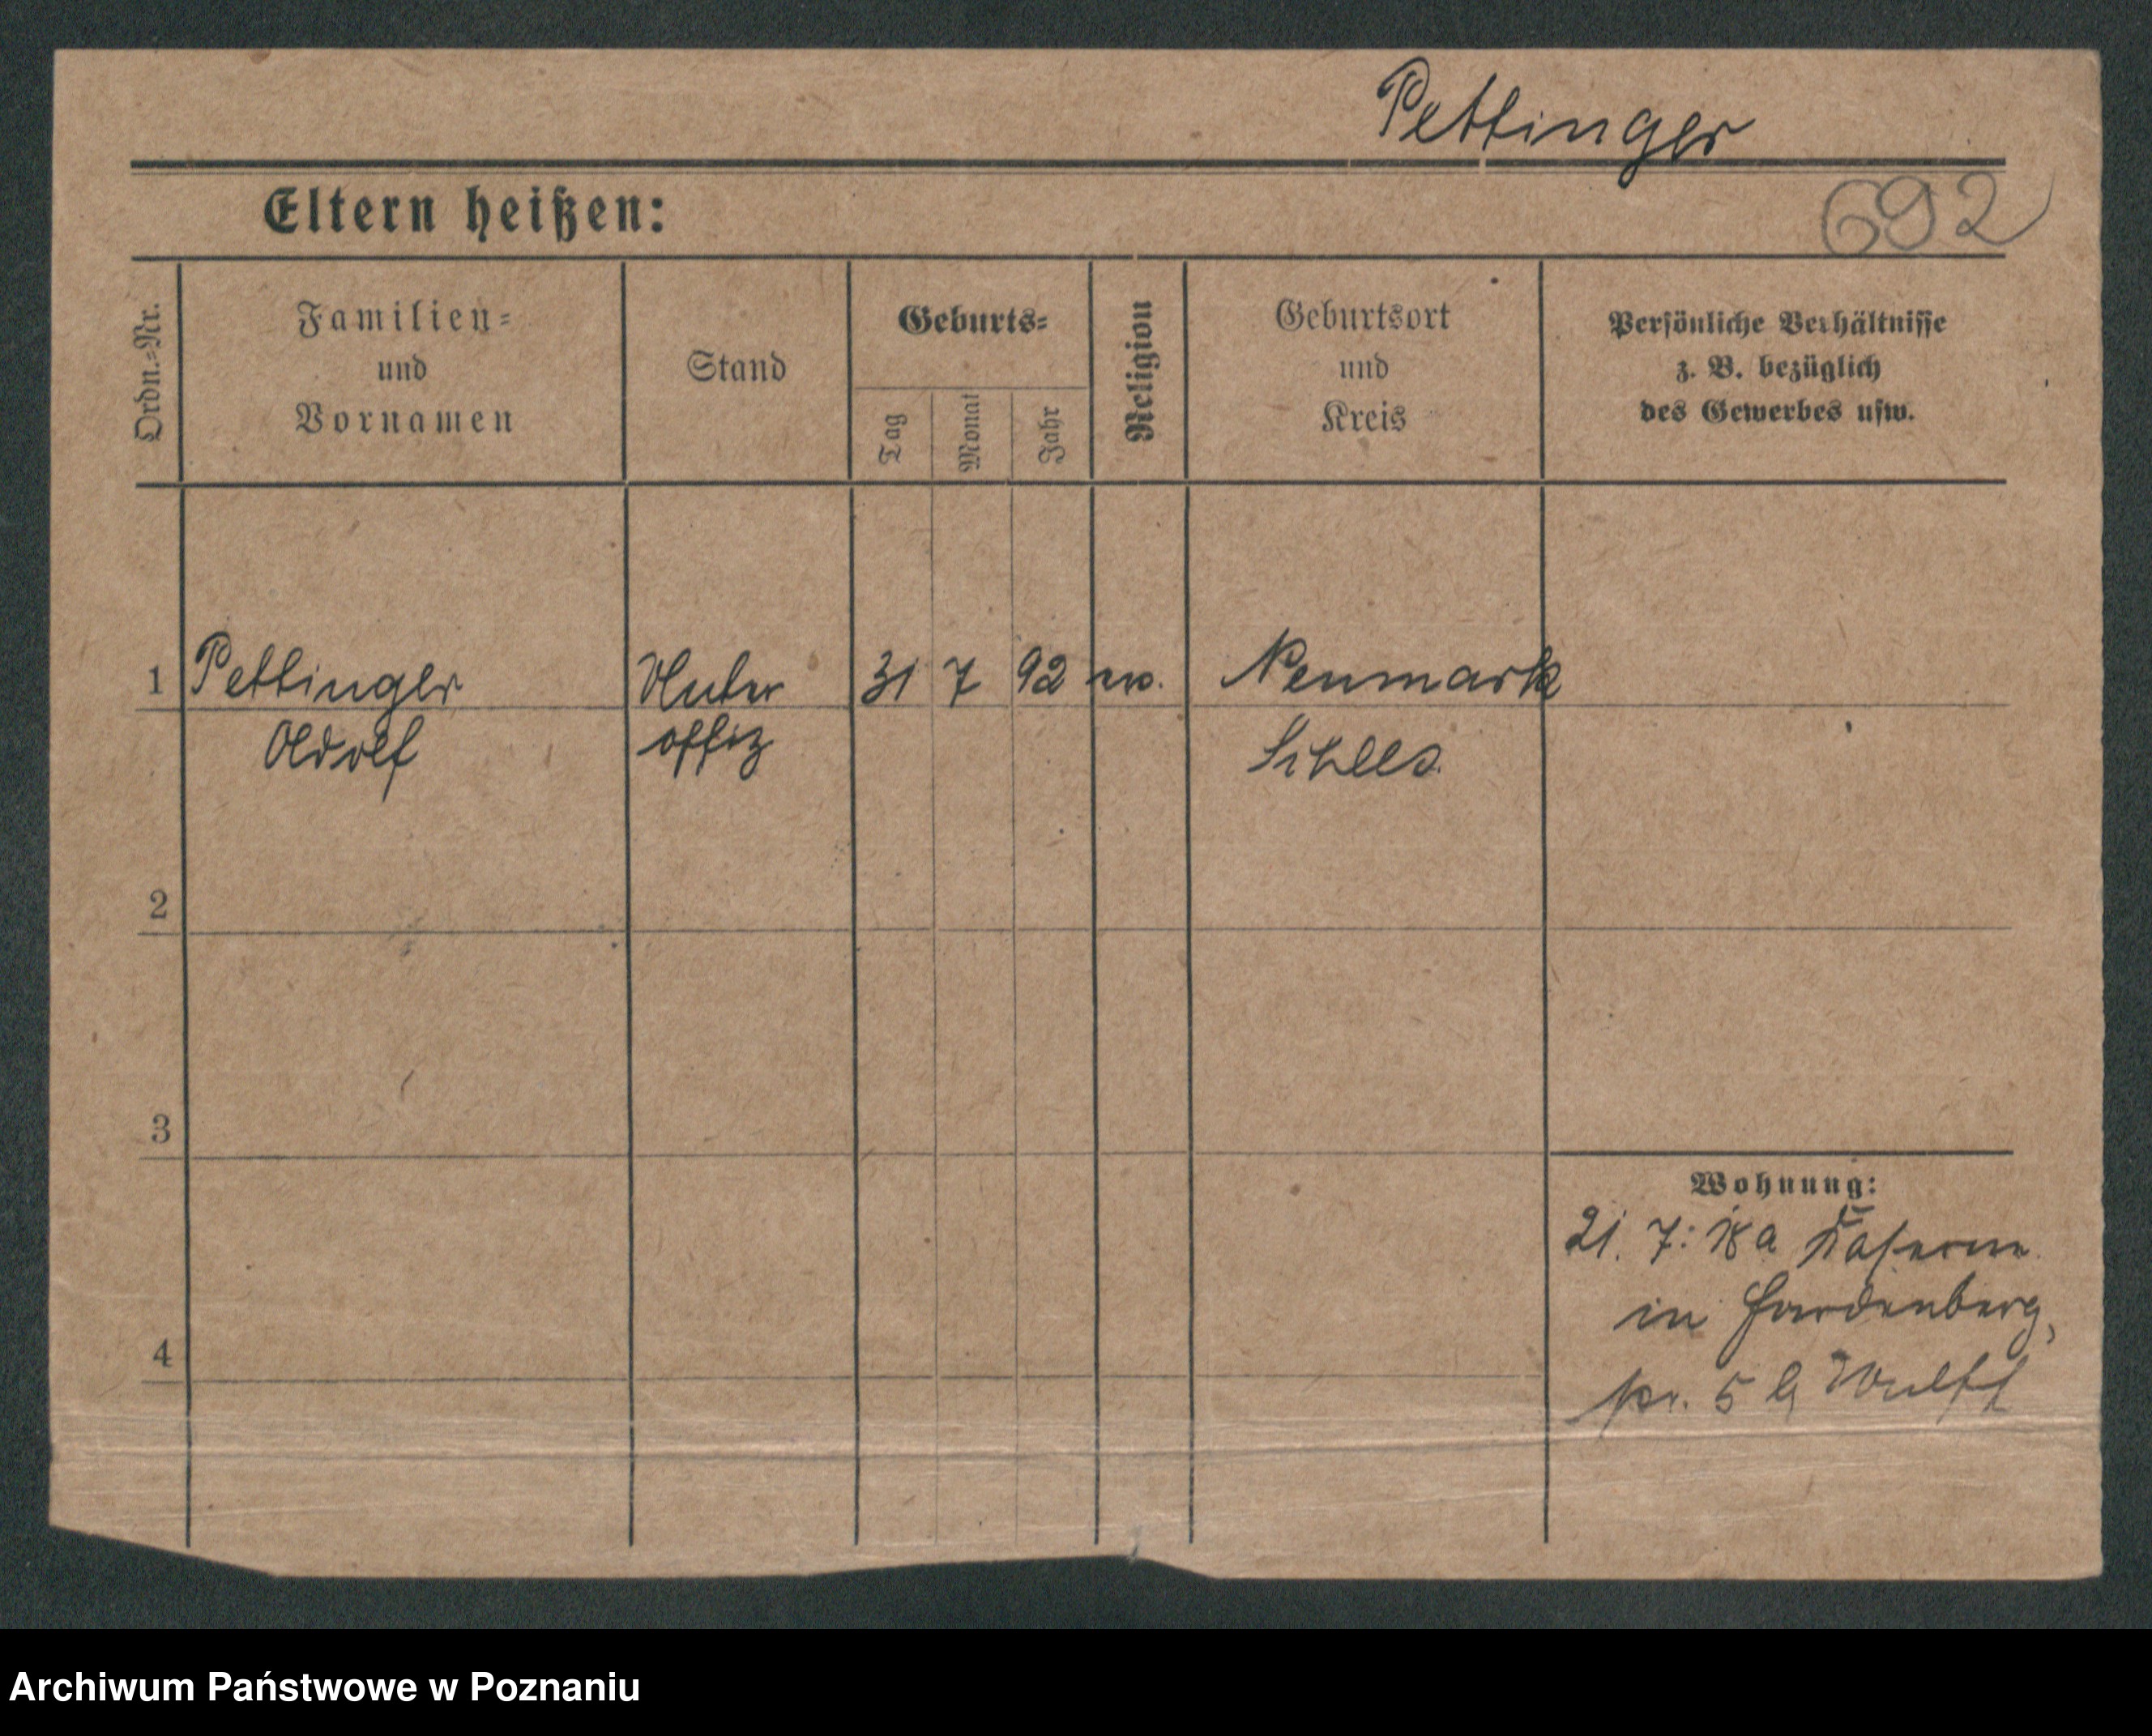 Pettinger
Eltern heißen:
692
Ordn.-Nr.
Familien-
und
Vornamen
Stand
Geburts-
Tag
Monat
Jahr
Religion
Geburtsort
und
Kreis
Persönliche Verhältnisse
z. B. bezüglich
des Gewerbes usw.
1 Pettinger Unter 31 7 92 Neumark
Adolf offiz Schles.
2
3
4
Wohnung:
21. 7. 18 a Kaserne
in Hardenberg,
5 Wulff
Archiwum Państwowe w Poznaniu